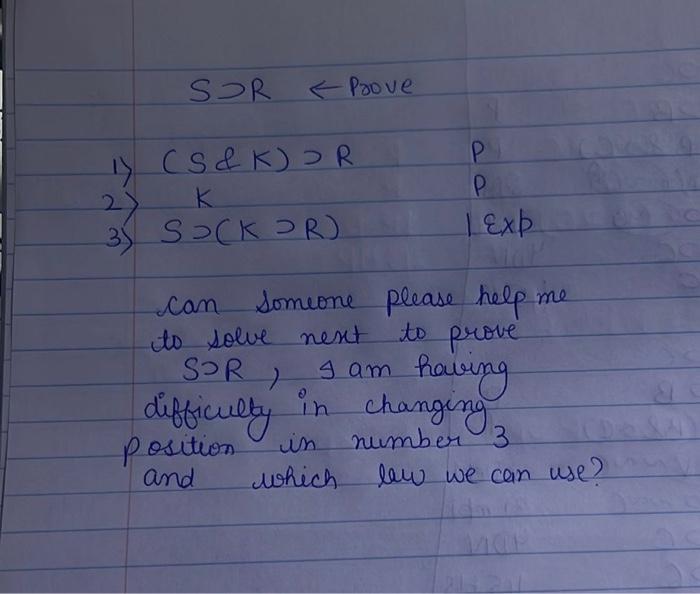 S⊃R ← Prove
1) (S & K) ⊃ R P
2) K P
3) S⊃(K ⊃R) 1 Exp
can someone please help me
to solve next to prove
S⊃R, I am having
difficulty in changing
position in number 3
and which law we can use?